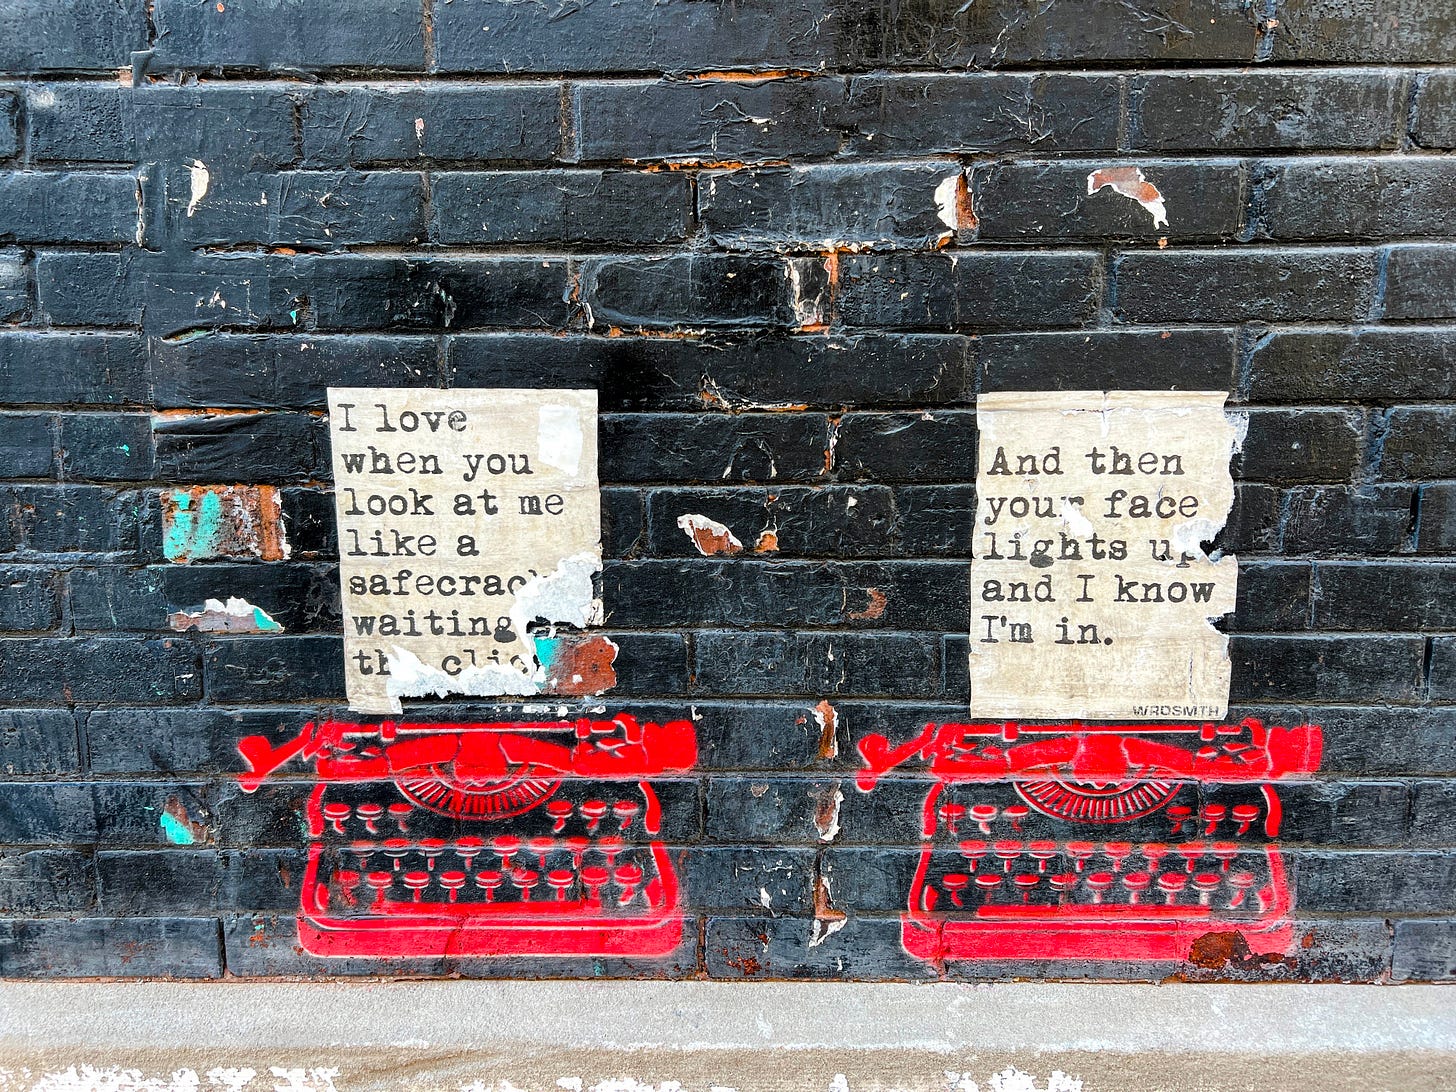 I love
when you
look at me
like a
waiting
And then
your face
lights up
and I know
I'm in.
WRDSMTH